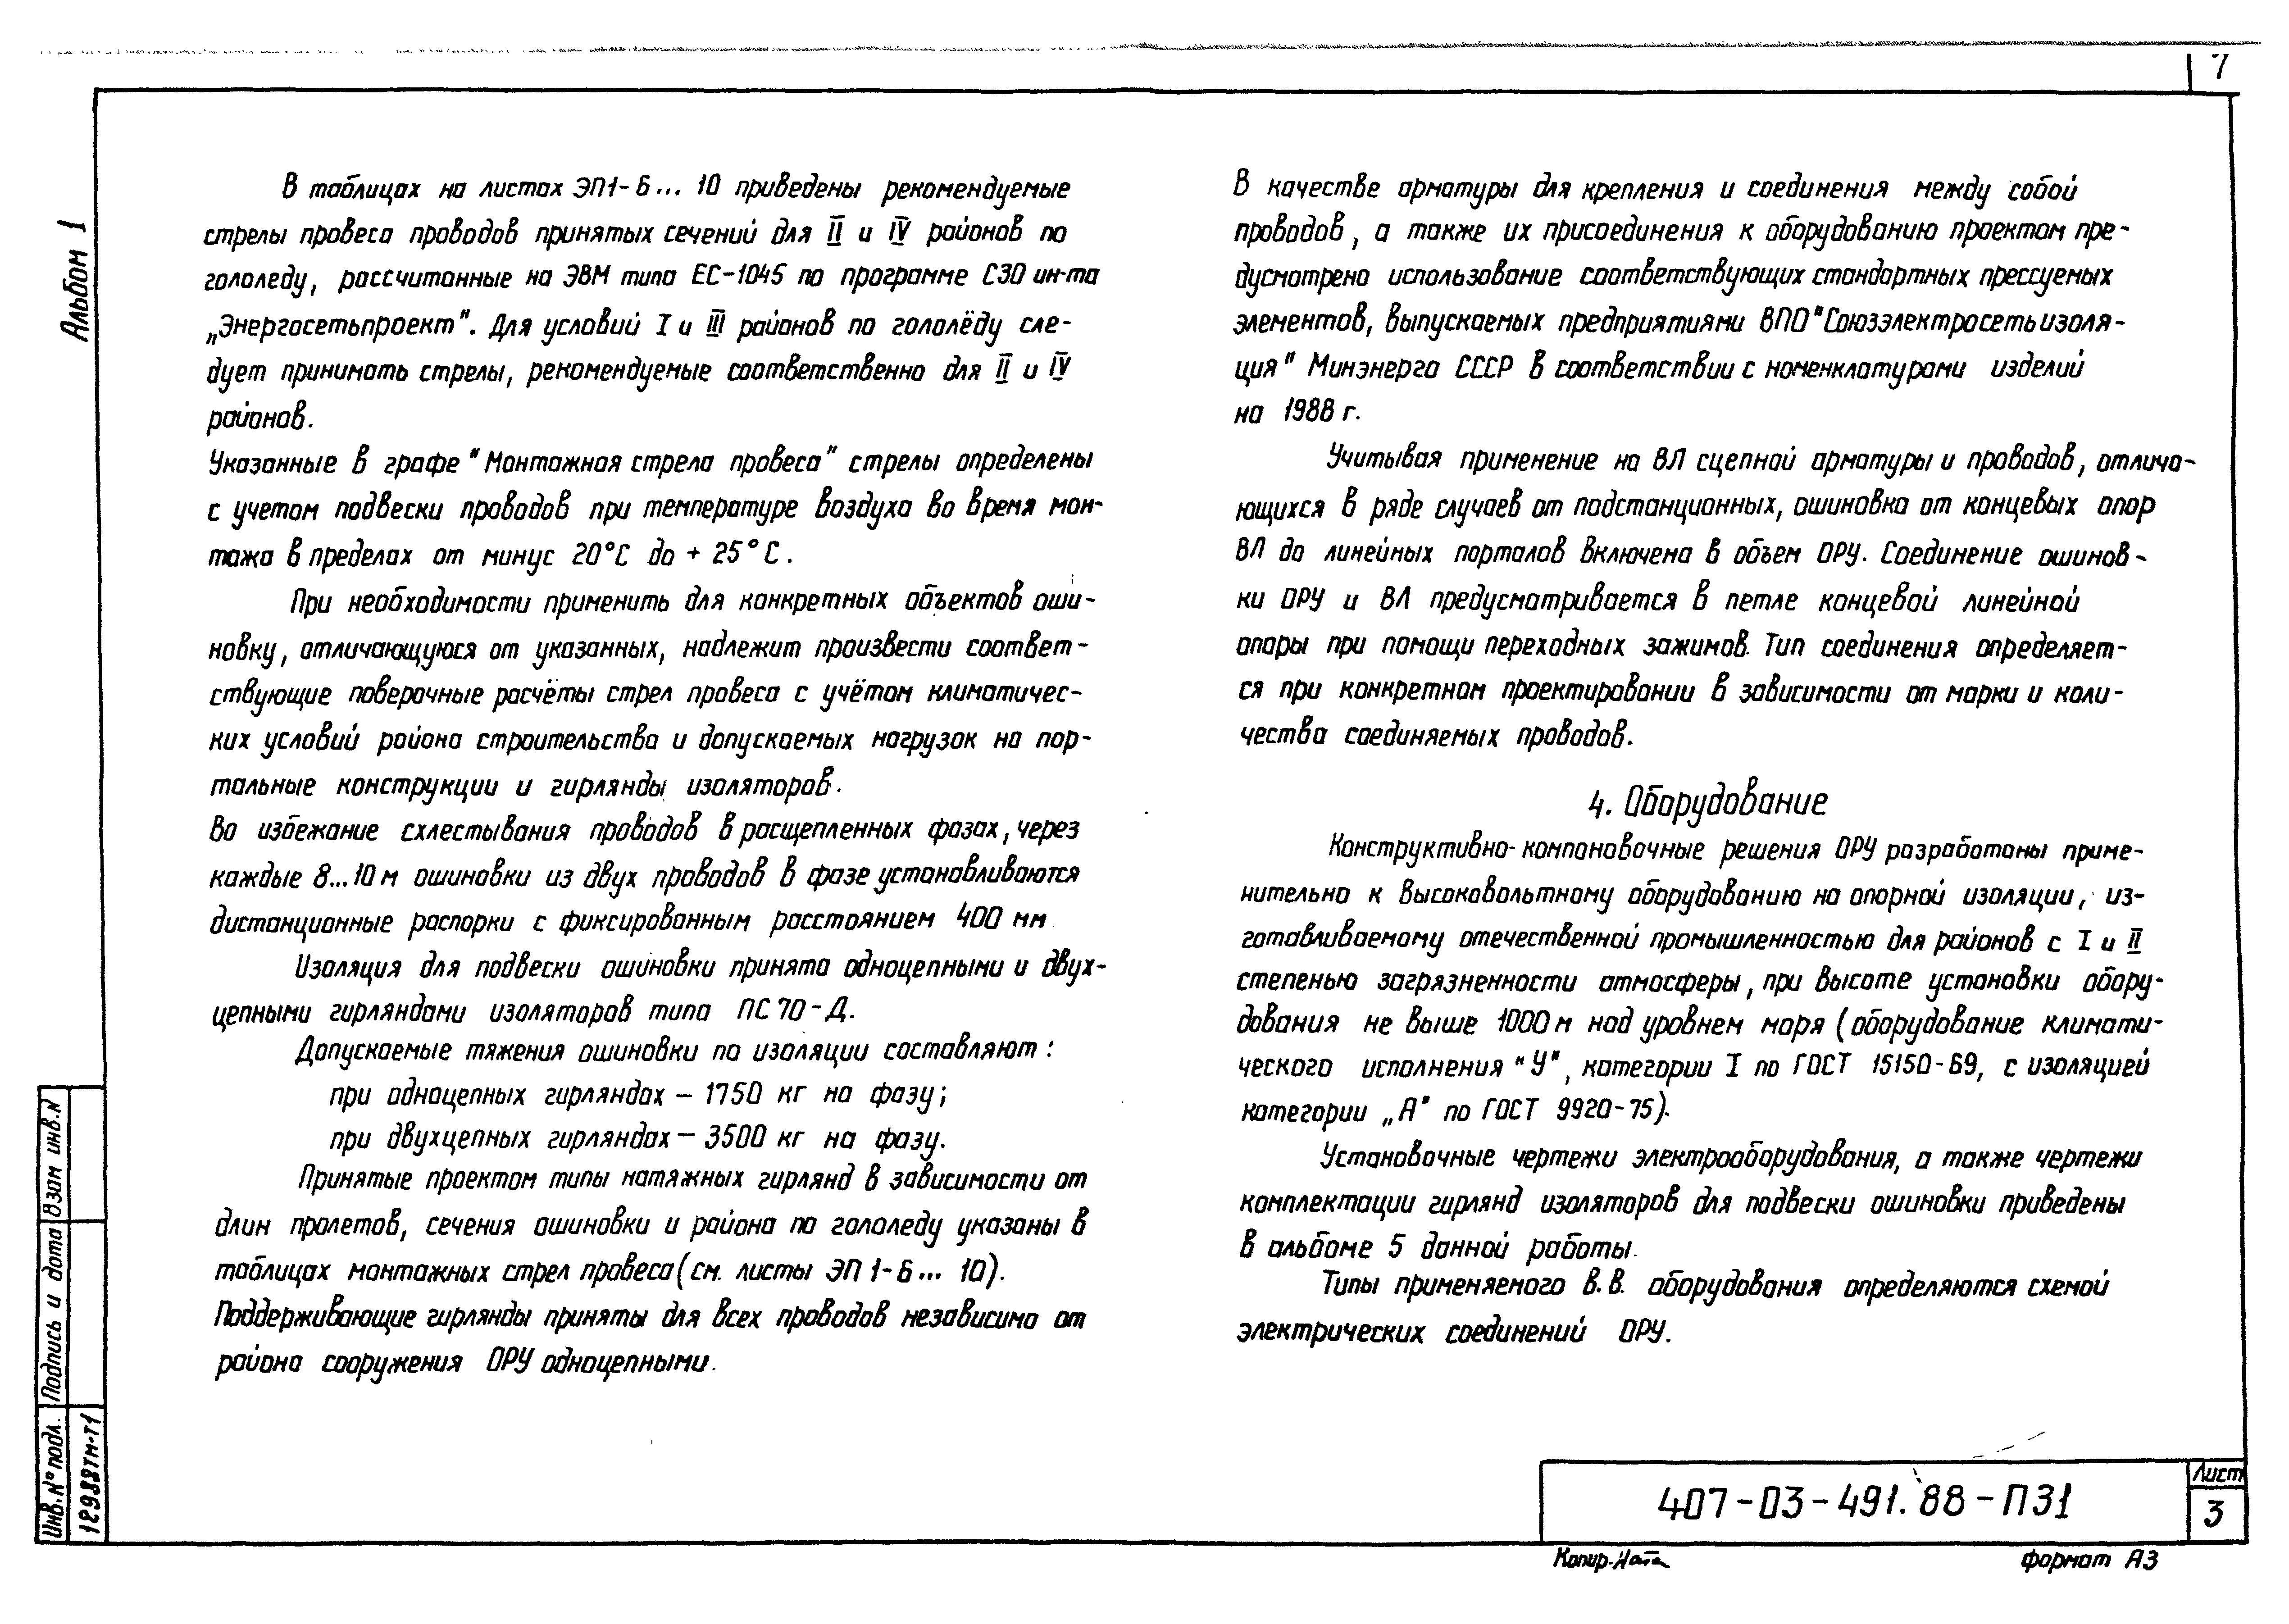 7
Альбом 1
В таблицах на листах ЭП1-6... 10 приведены рекомендуемые
стрелы провеса проводов принятых сечений для II и IV районов по
гололеду, рассчитанные на ЭВМ типа ЕС-1045 по программе СЗО ин-та
„Энергосетьпроект". Для условий I и III районов по гололёду сле-
дует принимать стрелы, рекомендуемые соответственно для II и IV
районов.
Указанные в графе "Монтажная стрела провеса" стрелы определены
с учетом подвески проводов при температуре воздуха во время мон-
тажа в пределах от минус 20°С до + 25°С.
При необходимости применить для конкретных объектов оши-
новку, отличающуюся от указанных, надлежит произвести соответ-
ствующие поверочные расчёты стрел провеса с учётом климатичес-
ких условий района строительства и допускаемых нагрузок на пор-
тальные конструкции и гирлянды изоляторов.
Во избежание схлестывания проводов в расщепленных фазах, через
каждые 8...10 м ошиновки из двух проводов в фазе устанавливаются
дистанционные распорки с фиксированным расстоянием 400 мм.
Изоляция для подвески ошиновки принята одноцепными и двух-
цепными гирляндами изоляторов типа ПС 70-Д.
Допускаемые тяжения ошиновки по изоляции составляют:
при одноцепных гирляндах – 1750 кг на фазу;
при двухцепных гирляндах – 3500 кг на фазу.
Принятые проектом типы натяжных гирлянд в зависимости от
длин пролетов, сечения ошиновки и района по гололеду указаны в
таблицах монтажных стрел провеса (см. листы ЭП 1-6... 10).
Поддерживающие гирлянды приняты для всех проводов независимо от
района сооружения ОРУ одноцепными.
В качестве арматуры для крепления и соединения между собой
проводов, а также их присоединения к оборудованию проектом пре-
дусмотрено использование соответствующих стандартных прессуемых
элементов, выпускаемых предприятиями ВПО "Союзэлектросетьизоля-
ция" Минэнерго СССР в соответствии с номенклатурами изделий
на 1988 г.
Учитывая применение на ВЛ сцепной арматуры и проводов, отлича-
ющихся в ряде случаев от подстанционных, ошиновка от концевых опор
ВЛ до линейных порталов включена в объем ОРУ. Соединение ошинов-
ки ОРУ и ВЛ предусматривается в петле концевой линейной
опоры при помощи переходных зажимов. Тип соединения определяет-
ся при конкретном проектировании в зависимости от марки и коли-
чества соединяемых проводов.
4. Оборудование
Конструктивно-компоновочные решения ОРУ разработаны приме-
нительно к высоковольтному оборудованию на опорной изоляции, из-
готавливаемому отечественной промышленностью для районов с I и II
степенью загрязненности атмосферы, при высоте установки обору-
дования не выше 1000 м над уровнем моря (оборудование климати-
ческого исполнения "У", категории I по ГОСТ 15150-69, с изоляцией
категории „А" по ГОСТ 9920-75).
Установочные чертежи электрооборудования, а также чертежи
комплектации гирлянд изоляторов для подвески ошиновки приведены
в альбоме 5 данной работы.
Типы применяемого в.в. оборудования определяются схемой
электрических соединений ОРУ.
Взам инв.N
Подпись и дата
Инв. N° подл.
12988тм-т1
407-03-491.88-ПЗ1
Лист
3
Копир.-Ната
формат А3